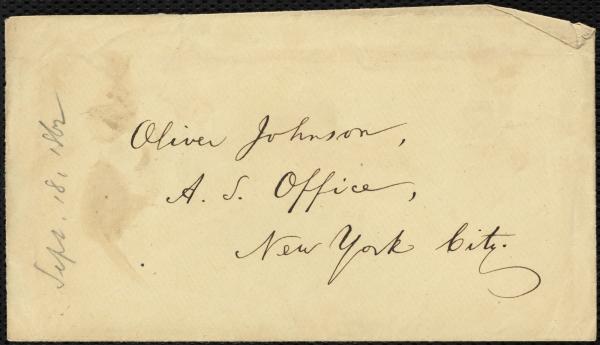 Oliver Johnson,
A. S. Office,
New York City.
Sept. 18, 1862